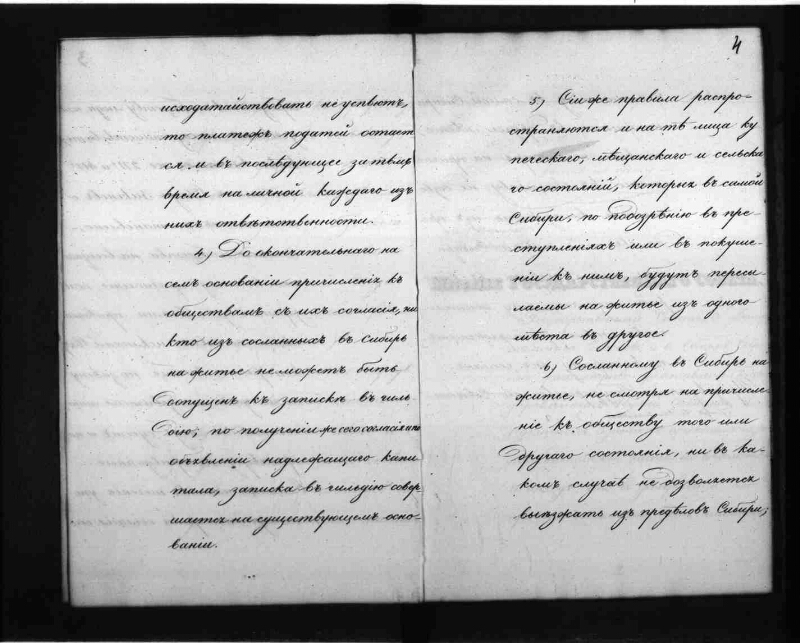 исходатайствовать не успѣютъ,
то платежъ податей остает
ся и въ послѣдующее затѣмъ
время на личной каждаго изъ
нихъ отвѣтственности.
4.) До окончательнаго на
семъ основаніи причисленія къ
обществамъ съ ихъ согласія, ни
кто изъ сосланныхъ въ Сибирь
на житье не можетъ быть
допущенъ къ запискѣ въ гиль
дію; по полученіи же сего согласія и по
объявленіи надлежащаго капи
тала, записка въ гильдію совер
шается на существующемъ осно-
ваніи.
4
5.) Сіи же правила распро-
страняются и на тѣ лица ку
печескаго, мѣщанскаго и сельска
го состояній, которыхъ въ самой
Сибири, по подозрѣнію въ пре-
ступленіяхъ или въ покуше-
ніи къ нимъ, будутъ пересы
лаемы на житье изъ одного
мѣста въ другое.
6.) Сосланному въ Сибирь на
житье, не смотря на причисле
ніе къ обществу того или
другаго состоянія, ни въ ка-
комъ случаѣ не дозволяется
выѣзжать изъ предѣловъ Сибири;